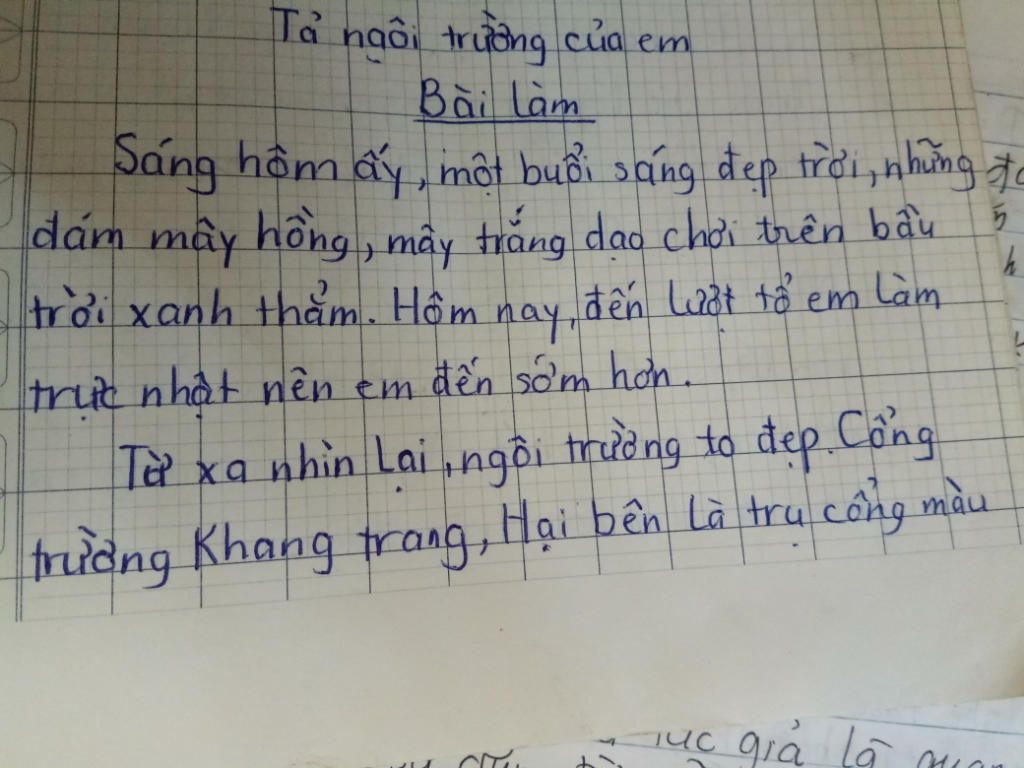 Tả ngôi trường của em
Bài làm
Sáng hôm ấy, một buổi sáng đẹp trời, những
dám mây hồng, mây trắng dạo chơi trên bầu
trời xanh thẳm. Hôm nay, đến lượt tổ em làm
trực nhật nên em đến sớm hơn.
Từ xa nhìn lại, ngôi trường to đẹp. Cổng
trường Khang trang, Hại bên là trụ cổng màu
giả là